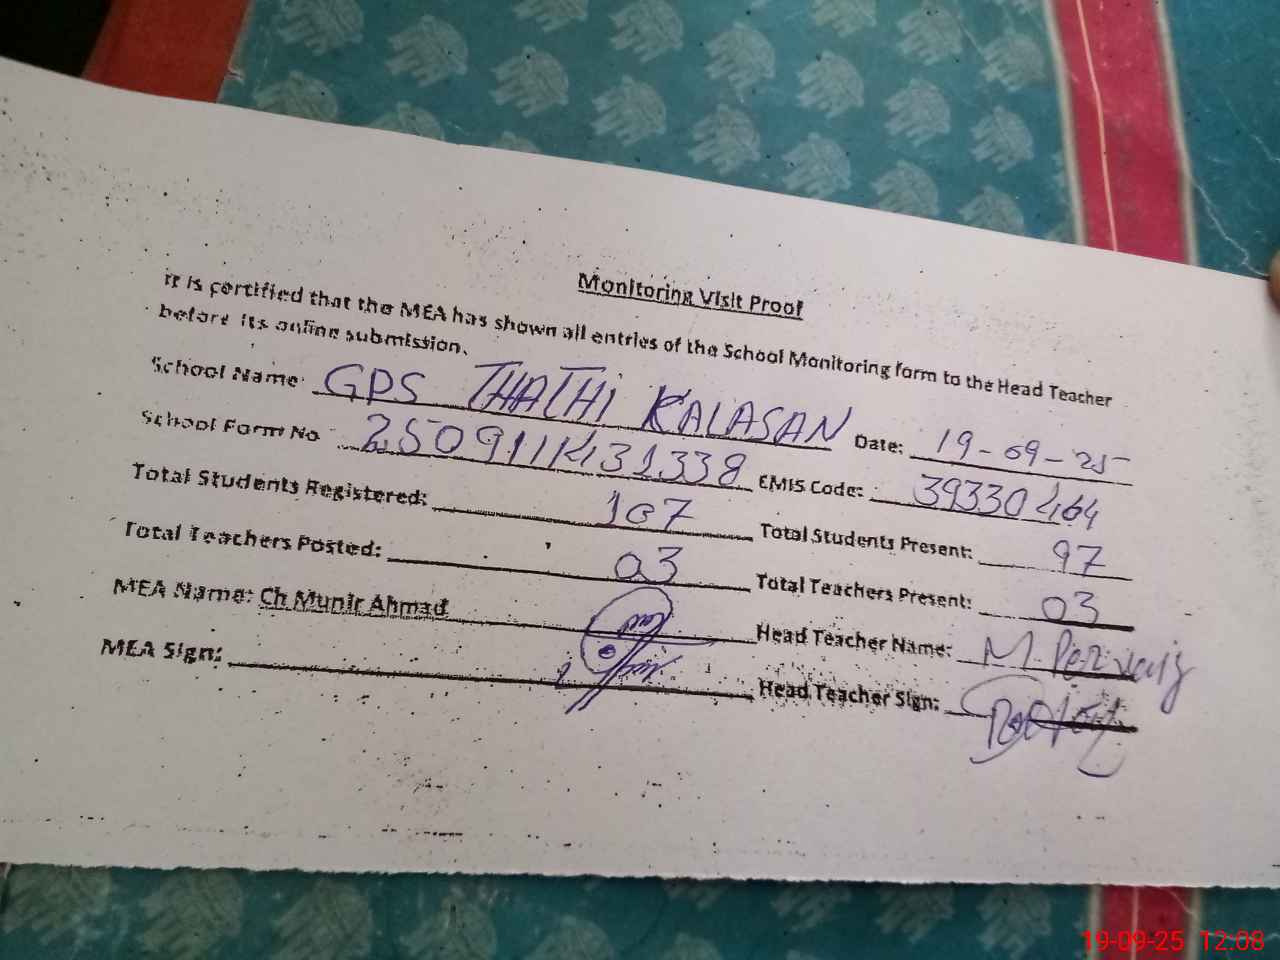 Monitoring Visit Proof
It is certified that the MEA has shown all entries of the School Monitoring form to the Head Teacher
before its online submission.
School Name: GPS THATHI KALASAN Date: 19-09-25
School Form No 250911K131338 EMIS Code: 39330464
Total Students Registered: 107 Total Students Present: 97
Total Teachers Posted: 03 Total Teachers Present: 03
MEA Name: Ch Munir Ahmad Head Teacher Name: M. Pervaiz
MEA Sign: Head Teacher Sign:
19-09-25 12:08